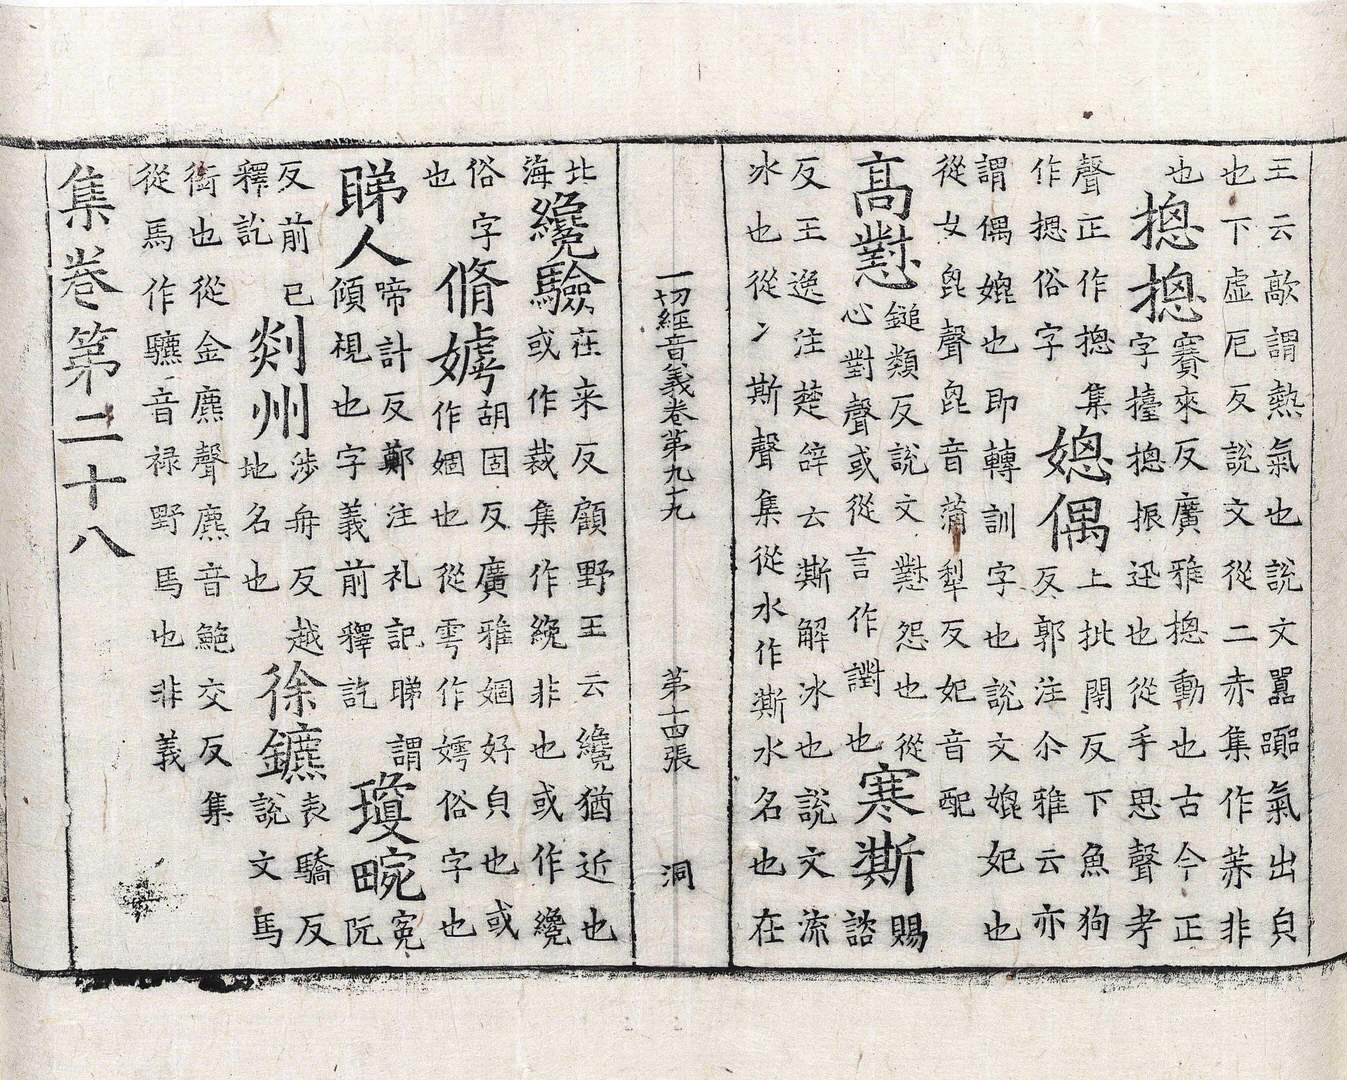 王云歊謂熱氣也說文囂囂氣出皃
也下虛厄反說文從二赤集作䒾非
也
揌揌
賽來反廣雅揌動也古今正
字擡揌振迅也從手思聲考
聲正作揌集
作摁俗字
媲偶
上批閇反下魚狗
反郭注尒雅云亦
謂偶媲也即轉訓字也說文媲妃也
從女毘聲毘音蒲犁反妃音配
高懟
鎚類反說文懟怨也從
心對聲或從言作譵也
寒凘
賜
談
反王逸注楚辝云凘解冰也說文流
冰也從冫斯聲集從水作澌水名也在
一切經音義卷第九十九 第十四張 洞
北
海
纔驗
在来反顧野王云纔猶近也
或作裁集作纔非也或作纔
俗字
也
脩嫭
胡固反廣雅婟好皃也或
作婟也從雩作嫮俗字也
睇人
啼計反鄭注礼記睇謂
傾視也字義前釋訖
瓊畹
冤
阮
反前已
釋訖
剡州
涉舟反越
地名也
徐鑣
表驕反
說文馬
銜也從金麃聲麃音鮑交反集
從馬作驫音禄野馬也非義
集卷第二十八